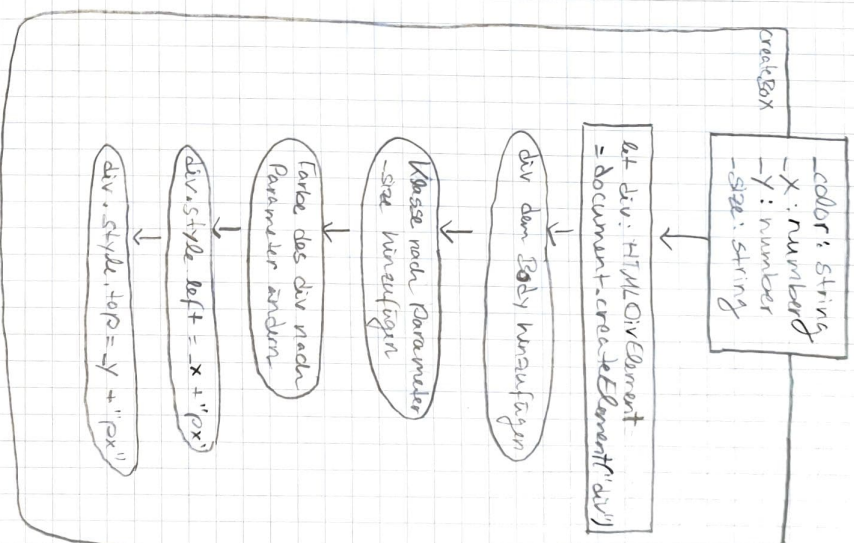 createBox
_color: string
_x: number
_y: number
_size: string
let div: HTMLDivElement
= document.createElement("div")
div dem Body hinzufügen
Klasse nach Parameter
_size hinzufügen
Farbe des div nach
Parameter ändern
div.style.left = _x + "px"
div.style.top = _y + "px"